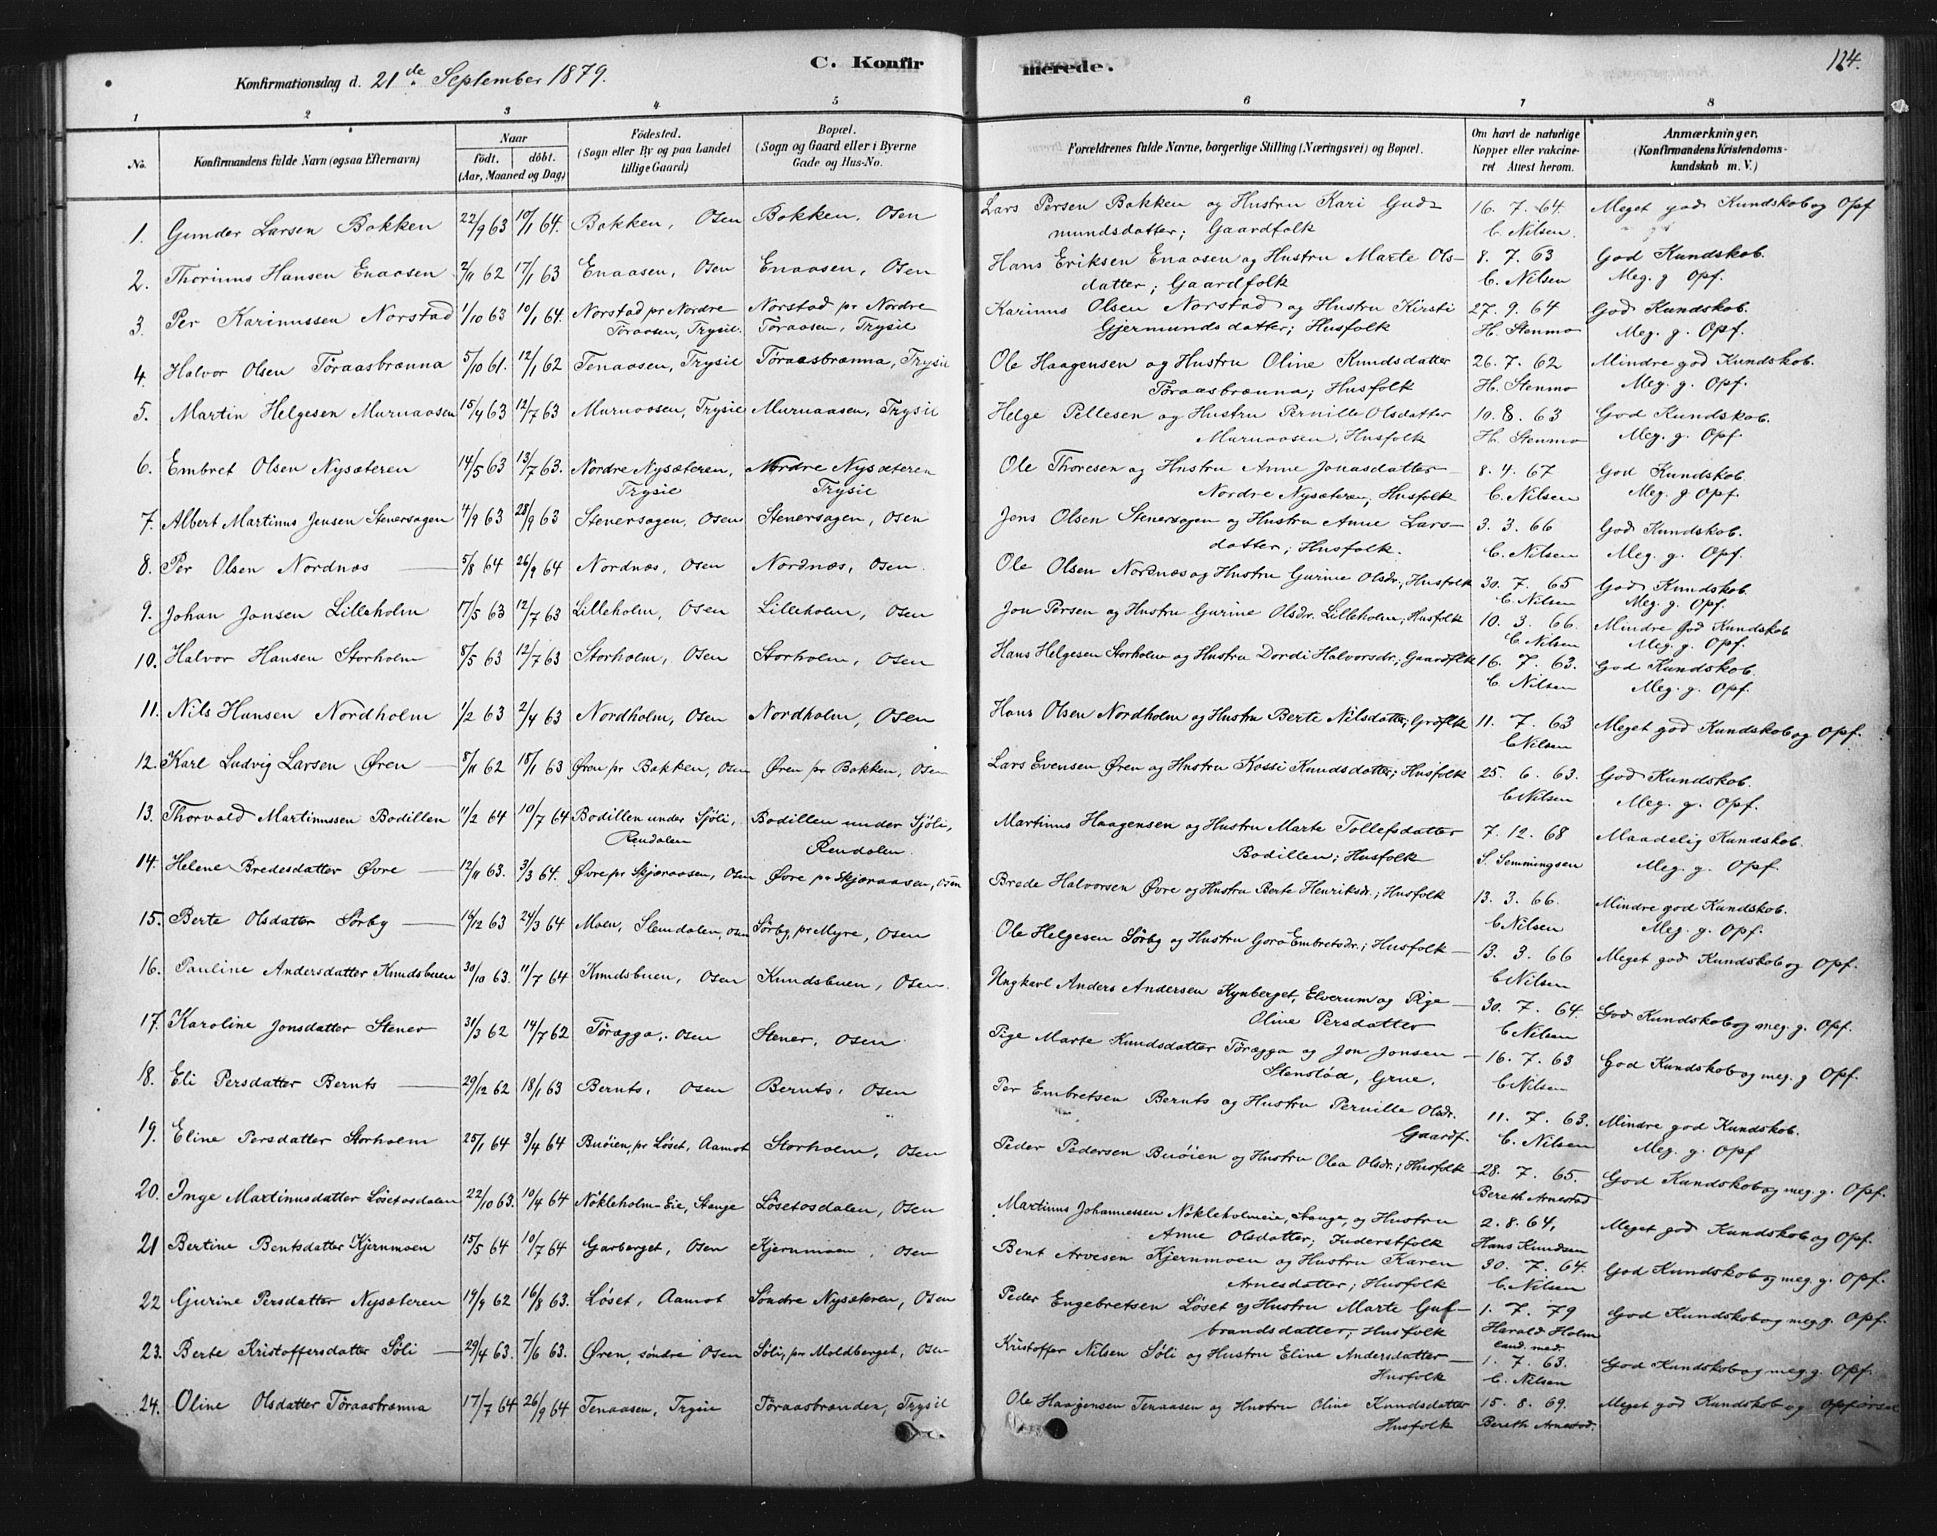 C. Konfirmerede.
124.
Konfirmationsdag d. 21de September 1879.
1 2 3 4 5 6 7 8
No. Konfirmandens fulde Navn (ogsaa Efternavn) Naar födt. döbt. (Aar, Maaned og Dag) Födested. (Sogn eller By og paa Landet tillige Gaard) Bopæl. (Sogn og Gaard eller i Byerne Gade og Hus-No. Forældrenes fulde Navne, borgerlige Stilling (Næringsvei) og Bopæl. Om havt de naturlige Kopper eller vakcineret Attest herom. Anmærkninger. (Konfirmandens Kristendomskundskab m. V.)
1. Gunder Larsen Bakken 22/9 63 10/1 64. Bakken, Osen Bakken, Osen Lars Persen Bakken og Hustru Kari Gudmundsdatter; Gaardfolk 16. 7. 64. C. Nilsen. Meget god Kundskab og Opf
2. Thorinus Hansen Enaasen 2/11 62 17/1 63 Enaasen, Osen Enaasen, Osen Hans Eriksen Enaasen og Hustru Marte Olsdatter; Gaardfolk 8. 7. 63 C. Nilsen God Kundskab. Meg. g Opf.
3. Per Karinussen Norstad 1/10 63 10/1 64. Norstad pr Nordre Töraasen, Trysil. Norstad pr Nordre Töraasen, Trysil Karinus Olsen Norstad og Hustru Kirsti Gjermundsdatter; Husfolk 27. 9. 64 H. Stenmo God Kundskab. Meg. g. Opf.
4. Halvor Olsen Töraasbrænna 5/10 61. 12/1 62 Tenaasen, Trysil Töraasbrænna, Trysil Ole Haagensen og Hustru Oline Knudsdatter Töraasbrænna; Husfolk 26. 7. 62 H. Stenmo Mindre god Kundskab. Meg. g. Opf.
5. Martin Helgesen Murnaasen 15/4 63 12/7 63 Murnaasen, Trysil Murnaasen, Trysil Helge Pellesen og Hustru Pernille Olsdatter Murnaasen, Husfolk 10. 8. 63 H. Stenmo God Kundskab. Meg. g. Opf.
6. Embret Olsen Nysæteren 14/5 63 13/7 63. Nordre Nysæteren, Trysil Nordre Nysæteren Trysil Ole Thoresen og Hustru Anne Jonasdatter Nordre Nysæteren; Husfolk 8. 4. 67 C. Nilsen God Kundskab. Meg. g Opf.
7. Albert Martinus Jensen Stenersagen 4/9 63 28/9 63 Stenersagen, Osen Stenersagen, Osen Jens Olsen Stenersagen og Hustru Anne Larsdatter; Husfolk. 3. 3. 66 C. Nilsen God Kundskab. Meg. g. Opf.
8. Per Olsen Nordnæs 5/8 64 26/9 64 Nordnæs, Osen Nordnæs, Osen. Ole Olsen Nordnæs og Hustru Gurine Olsdr.; Husfolk 30. 7. 65 C. Nilsen God Kundskab. Meg. g. Opf.
9. Johan Jonsen Lilleholm 17/5 63 12/7 63 Lilleholm, Osen Lilleholm, Osen Jon Persen og Hustru Gurine Olsdr. Lilleholm; Husfolk 10. 3. 66. C. Nilsen Mindre God Kundskab Meg. g. Opf.
10. Halvor Hansen Storholm 8/5 63 12/7 63 Storholm, Osen Storholm, Osen Hans Helgesen Storholm og Hustru Dordi Halvorsdr.; Gaardflk 16. 7. 63. C. Nilsen God Kundskab. Meg. g. Opf.
11. Nils Hansen Nordholm 1/2 63 2/4 63 Nordholm, Osen Nordholm, Osen Hans Olsen Nordholm og Hustru Berte Nilsdatter; Grdflk 11. 7. 63 C Nilsen Meget god Kundskab og Opf.
12. Karl Ludvig Larsen Øren 8/11 62 18/1 63 Øren pr Bakken, Osen Øren pr Bakken, Osen Lars Evensen Øren og Hustru Kassi Knudsdatter; Husfolk 25. 6. 63. C Nilsen God Kundskab. Meg. g. Opf.
13. Thorvald Martinussen Bodillen 11/2 64 10/7 64 Bodillen under Sjöli, Rendalen Bodillen under Sjöli, Rendalen. Martinus Haagensen og Hustru Marte Tollefsdatter Bodillen; Husfolk 7. 12. 68 S. Semmingsen Maadelig Kundskab. Meg. g. Opf.
14. Helene Bredesdatter Øvre 12/11 63. 3/3 64. Øvre pr Skjæraasen, Osen Øvre pr Skjæraasen, Osen Brede Halvorsen Øvre og Hustru Berte Henriksdr.; Husfolk 13. 3. 66. C Nilsen Mindre god Kundskab. Meg. g. Opf.
15. Berte Olsdatter Sörby 16/12 63 24/3 64 Moen, Slemdalen, Osen Sörby, pr Myre, Osen Ole Helgesen Sörby og Hustru Goro Embretsdr.; Husfolk 13. 3. 66 C Nilsen Meget god Kundskab og Opf.
16. Pauline Andersdatter Knudsbuen 30/10 63. 11/7 64 Knudsbuen, Osen Knudsbuen, Osen. Ungkarl Anders Andersen Kynberget, Elverum og Pige Oline Persdatter 30. 7. 64. C Nilsen God Kundskab og meg. g. Opf.
17. Karoline Jonsdatter Stener 31/3 62 14/7 62 Törægga, Osen Stener, Osen. Pige Marte Knudsdatter Törægga og Jon Jonsen Stenstød, Grue. 16. 7. 63 C Nilsen God Kundskab og meg. g Opf.
18. Eli Persdatter Bernts 29/12 62 18/1 63 Bernts, Osen Bernts, Osen Per Embretsen Bernts og Hustru Pernille Olsdr. Gaardf. 11. 7. 63. C. Nilsen Mindre god Kundskab. Meg. g. Opf
19. Eline Persdatter Storholm 25/1 64 3/4 64 Buöien, pr Löset, Aamot Storholm, Osen Peder Pedersen Buöien og Hustru Olea Olsdr.; Husfolk 28. 7. 65. Bereth Arnestad God Kundskab og meg. g. Opf.
20. Inge Martinusdatter Løsetosdalen 22/10 63. 10/4 64 Nökleholm-Eie, Stange Løsetosdalen, Osen Martinus Johannessen Nökleholmeie, Stange, og Hustru Anne Olsdatter; Inderstfolk 2. 8. 64. Hans Knudsen Meget god Kundskab og Opf.
21 Bertine Bentsdatter Kjernmoen 15/5 64 10/7 64 Garberget, Osen Kjernmoen, Osen Bent Arvesen Kjernmoen og Hustru Karen Arnesdatter; Husfolk 30. 7. 64. C. Nilsen God Kundskab og meg. g. Opf.
22 Gurine Persdatter Nysæteren 19/9 62 16/8 63. Löset, Aamot Søndre Nysæteren, Osen Peder Engebretsen Löset og Hustru Marte Gulbrandsdatter; Husfolk 1. 7. 79 Harald Holm cand. med. God Kundskab og meg g. Opf.
23. Berte Kristoffersdatter Söli 29/4 63. 7/6 63. Øren, söndre Osen Söli, pr Moldberget, Osen Kristoffer Nilsen Söli og Hustru Eline Andersdatter Husfolk 1. 7. 63. C. Nilsen God Kundskab og meg g. Opf.
24. Oline Olsdatter Töraasbrænna 17/7 64 26/9 64 Tenaasen, Trysil Töraasbrænden, Trysil Ole Haagensen Tenaasen og Hustru Oline Knudsdatter Husfolk 15. 8. 69. Bereth Arnestad. Meget god Kundskab og Opförsel